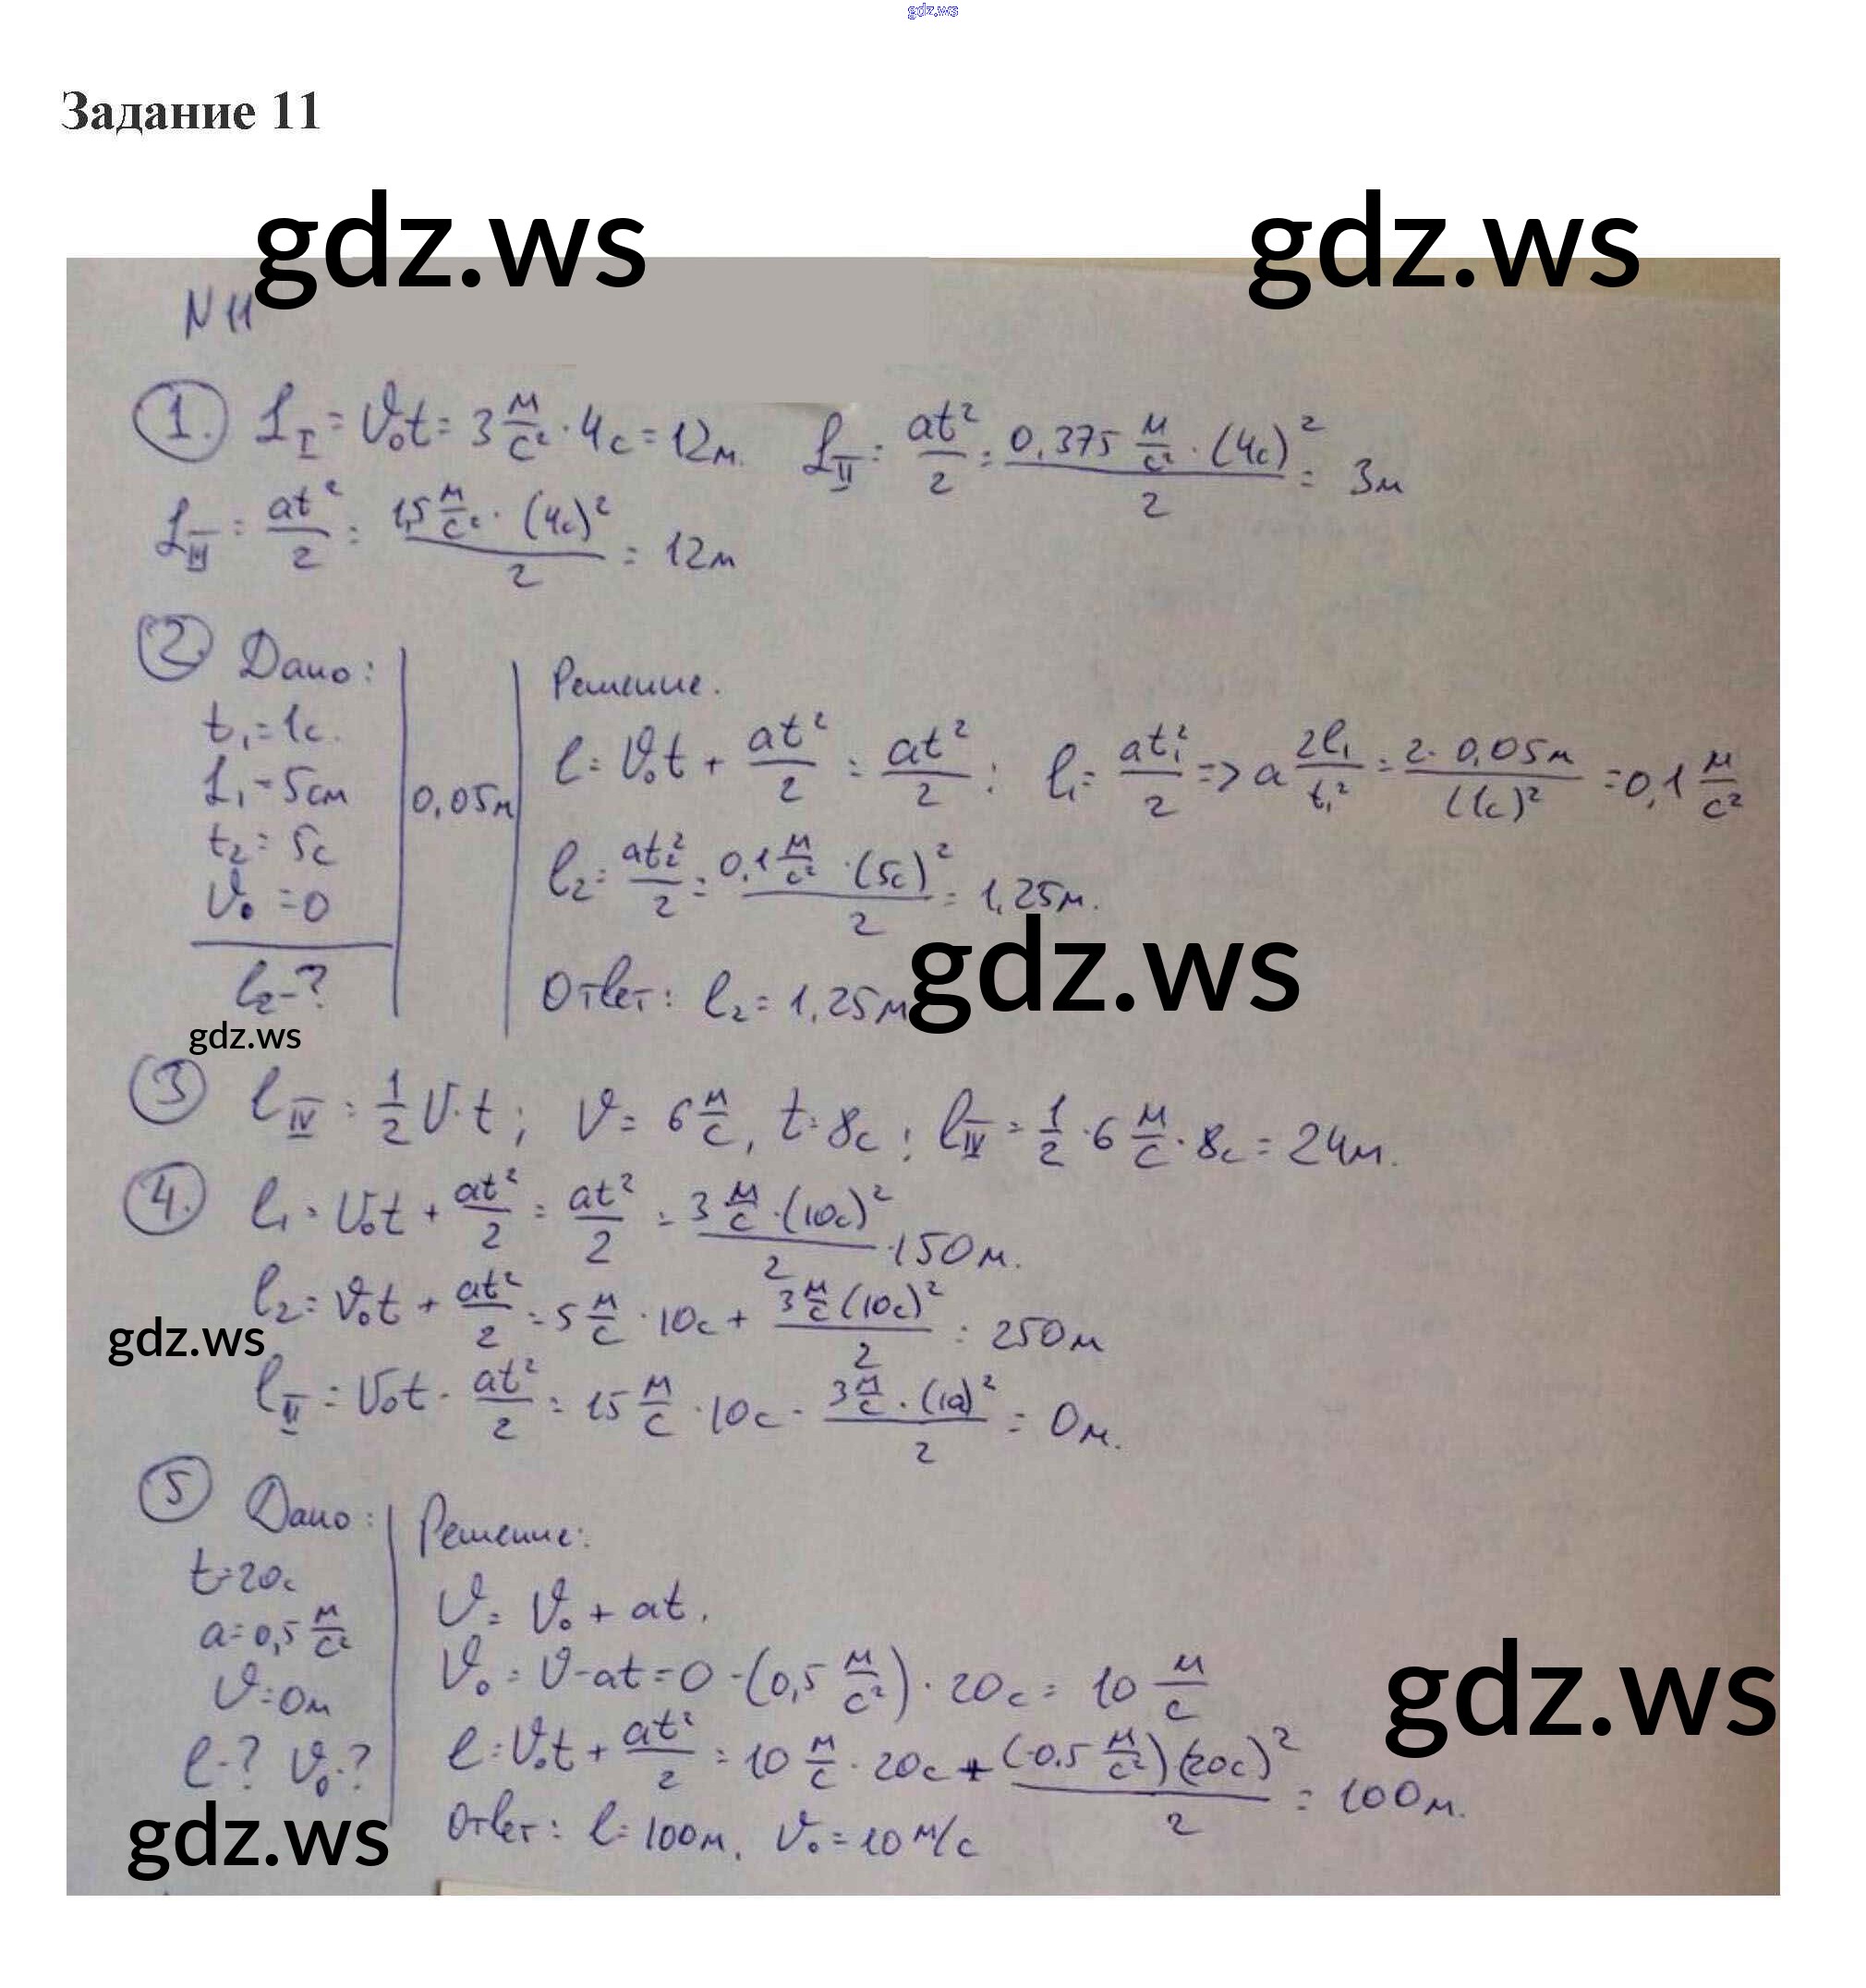 gdz.ws
Задание 11
gdz.ws gdz.ws
N 11
1. L_I = v₀t = 3 м/с² · 4с = 12м. L_II = at²/2 = 0,375 м/с² · (4с)²/2 = 3м
L_III = at²/2 = 1,5 м/с² · (4с)²/2 = 12м
2. Дано: Решение.
t₁ = 1с.
L₁ = 5см 0,05м
t₂ = 5с
v₀ = 0
l₂ - ?
l = v₀t + at²/2 = at²/2 ; l₁ = at₁²/2 => a 2l₁/t₁² = 2 · 0,05м/(1с)² = 0,1 м/с²
l₂ = at₂²/2 = 0,1 м/с² · (5с)²/2 = 1,25м.
Ответ: l₂ = 1,25м
gdz.ws
gdz.ws
3 l_IV = 1/2 v · t ; v = 6 м/с, t = 8с ; l_IV = 1/2 · 6 м/с · 8с = 24м.
4. l₁ = v₀t + at²/2 = at²/2 = 3 м/с · (10с)²/2 · 150м.
l₂ = v₀t + at²/2 = 5 м/с · 10с + 3 м/с (10с)²/2 = 250м
gdz.ws
l_II = v₀t - at²/2 = 15 м/с · 10с - 3 м/с · (10)²/2 = 0м.
5 Дано: Решение:
t = 20с
a = 0,5 м/с²
v = 0м
l - ? v₀ - ?
v = v₀ + at.
v₀ = v - at = 0 - (0,5 м/с²) · 20с = 10 м/с
l = v₀t + at²/2 = 10 м/с · 20с + (-0.5 м/с²)(20с)²/2 = 100м.
Ответ: l = 100м, v₀ = 10 м/с
gdz.ws
gdz.ws